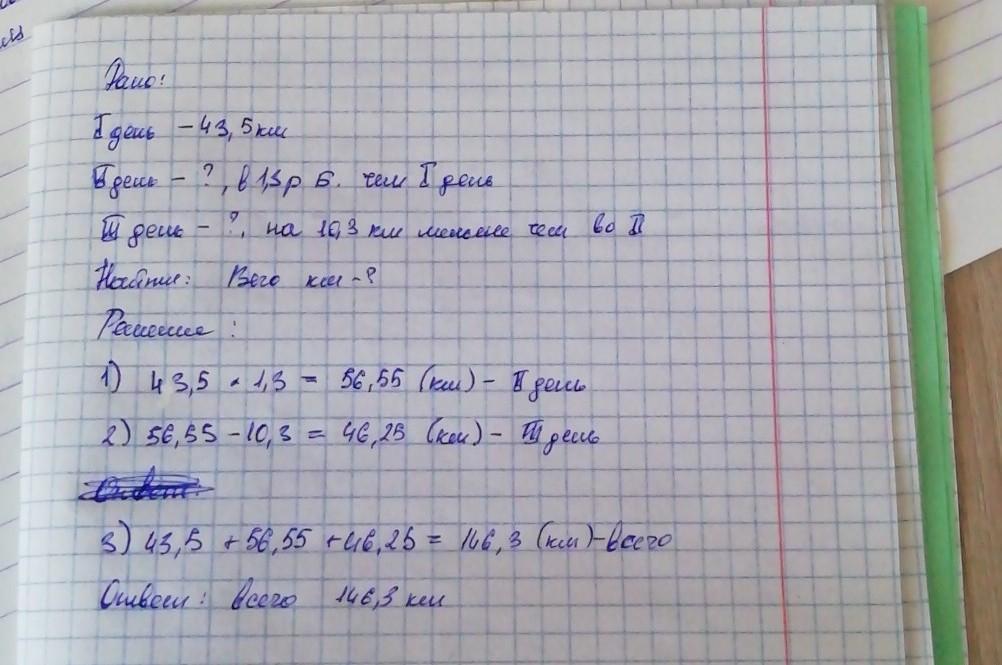 Дано:
I день - 43,5 км
II день - ?, в 1,3 р Б. чем I день
III день - ?, на 10,3 км меньше чем во II
Найти: Всего км - ?
Решение:
1) 43,5 · 1,3 = 56,55 (км) - II день
2) 56,55 - 10,3 = 46,25 (км) - III день
3) 43,5 + 56,55 + 46,25 = 146,3 (км) - всего
Ответ: всего 146,3 км